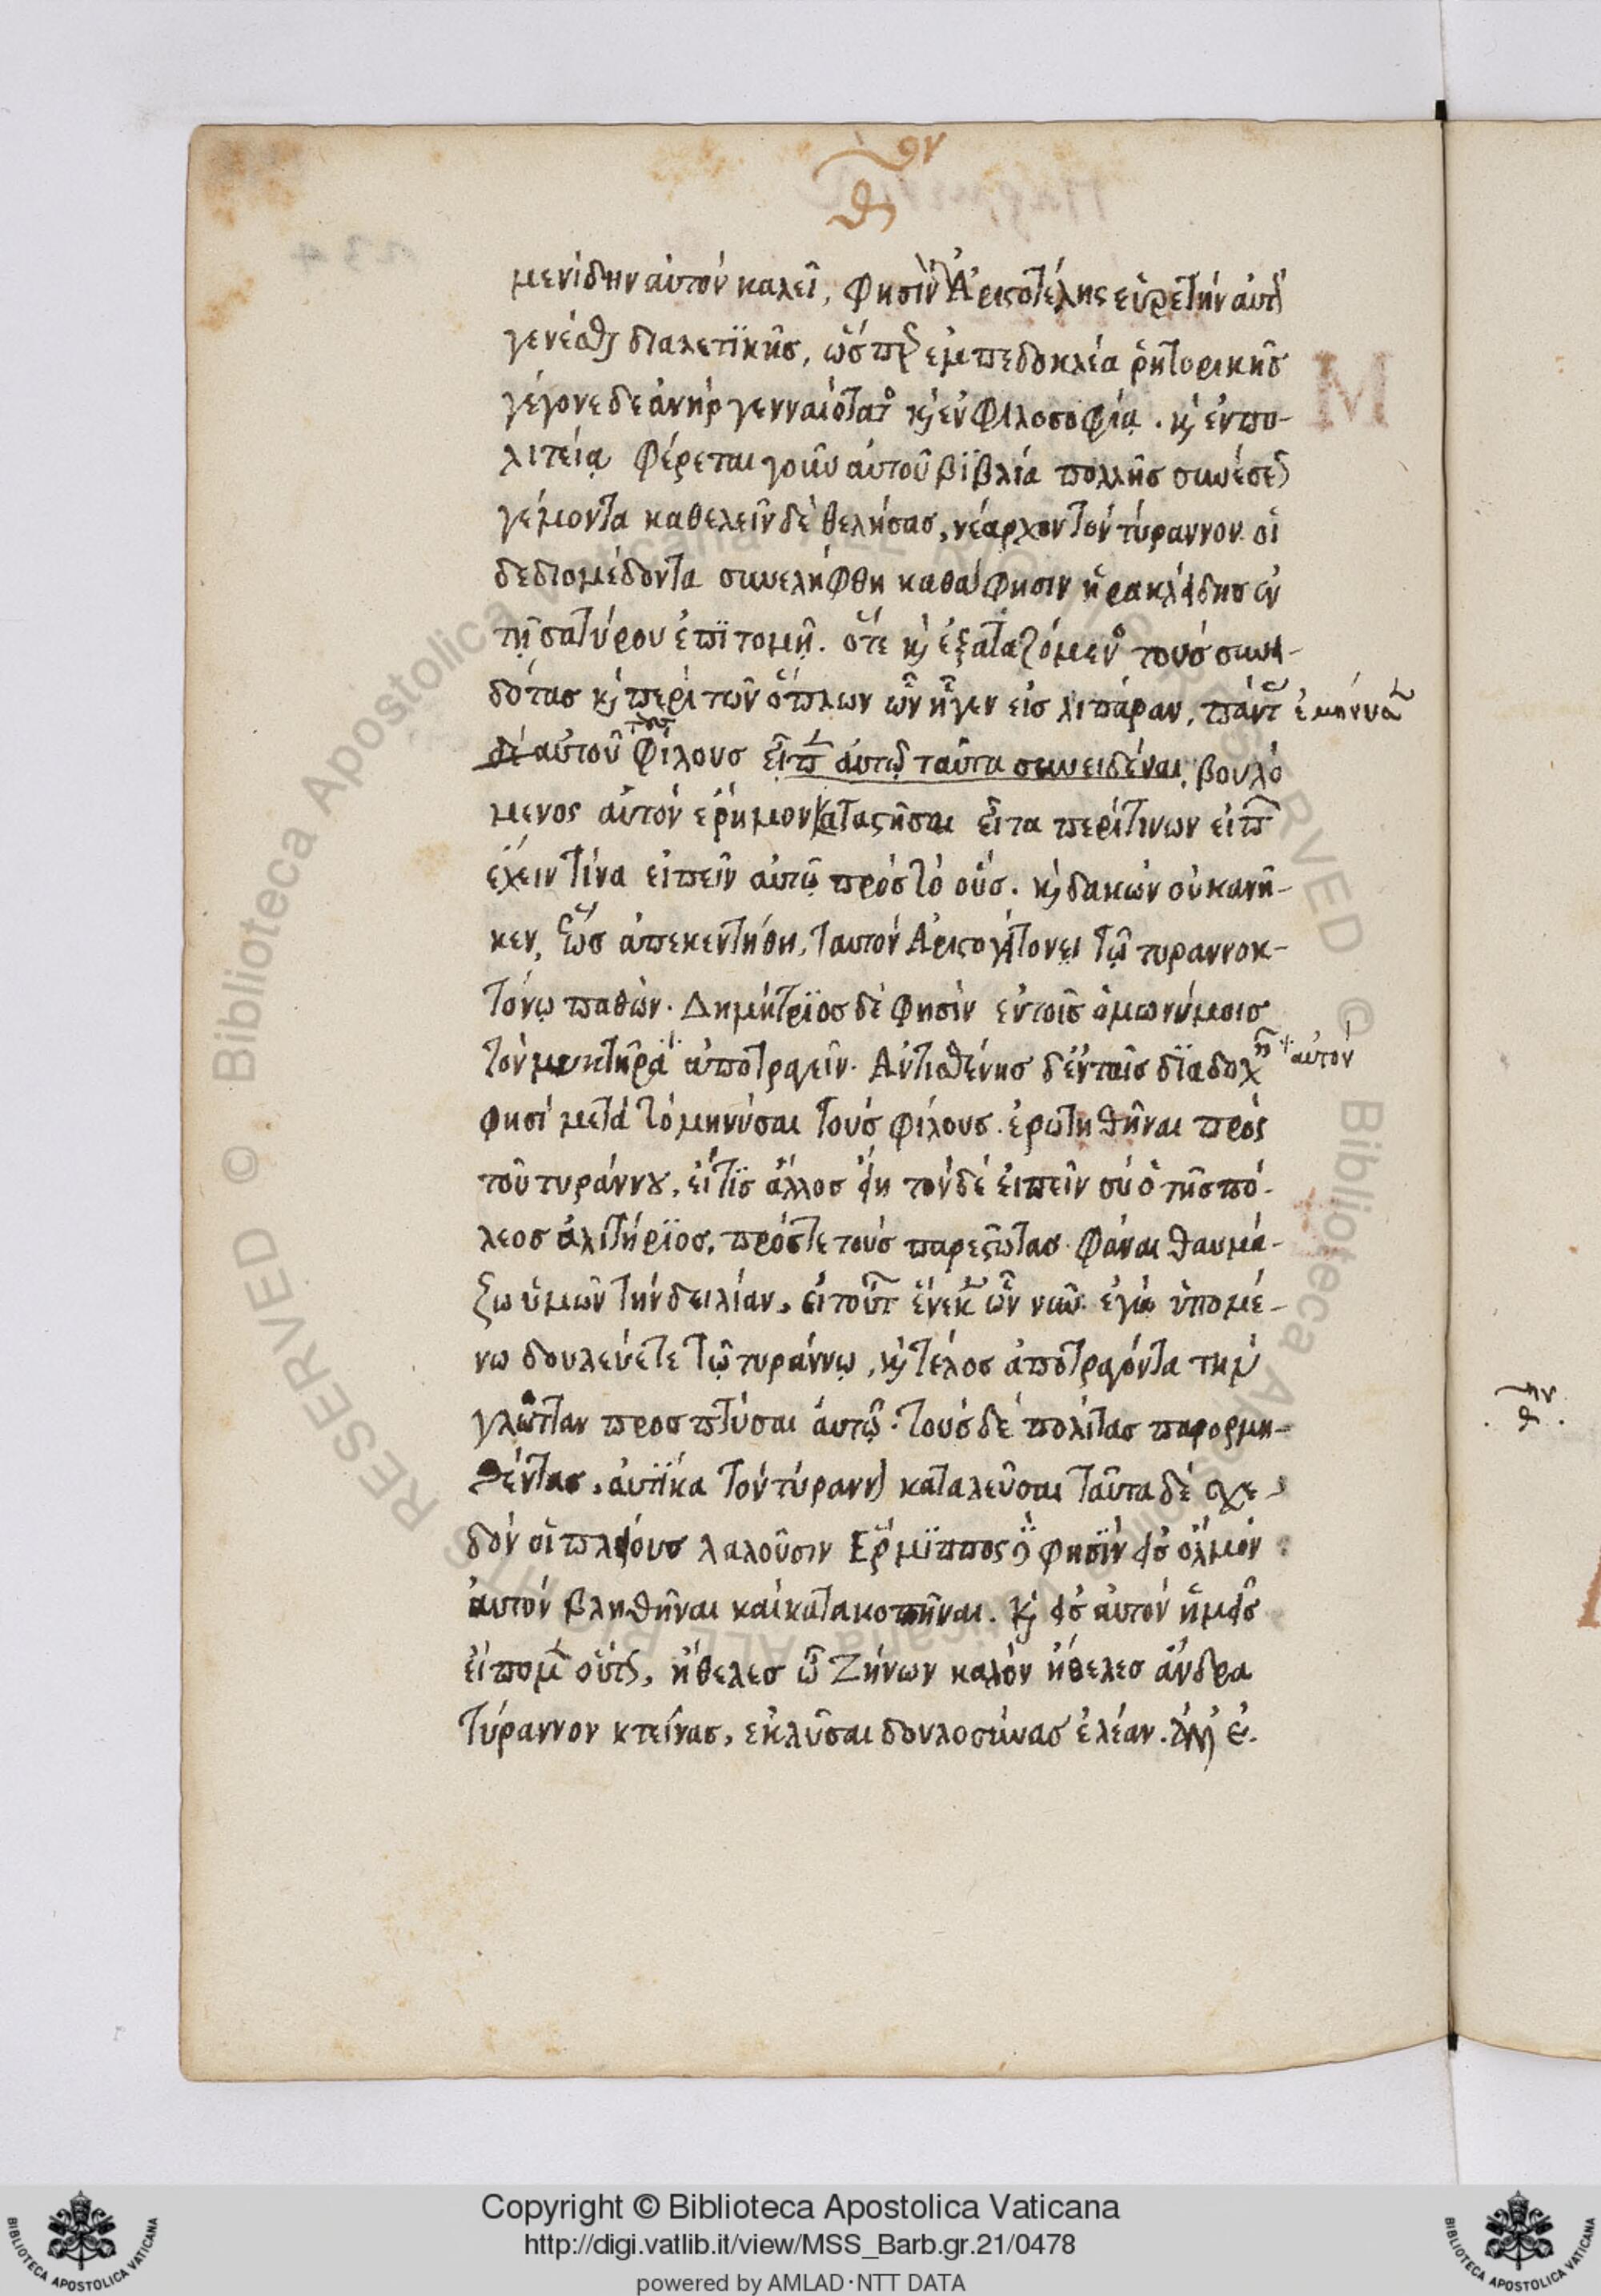 μενίδην αὐτὸν καλεῖ, φησὶν Ἀριστοτέλης εὑρετὴν αὐτὸν
γενέσθαι διαλετϊκῆς, ὥσπερ ἐμπεδοκλέα ῥητορικῆς
γέγονε δὲ ἀνὴρ γενναιότατος κὶ ἐν φιλοσοφίᾳ. κὶ ἐν πο-
λιτείᾳ φέρεται γοῦν αὐτοῦ βϊβλία πολλῆς συνέσεως
γέμοντα καθελεῖν δὲ θελήσας, νέαρχον τὸν τύραννον. οἱ
δεδιομέδοντα συνελήφθη καθά φησιν ἡρακλείδης ἐν
τῇ σατύρου ἐπϊτομῇ. ὅτε κὶ ἐξαταζόμενος τοὺς συνει-
δότας κὶ περὶ τῶν ὅπλων ὧν ἦγεν εἰς λιπάραν, πάντας ἐμήνυσεν
αὐτοῦ φίλους εἶπεν αὐτῷ ταῦτα συνειδέναι, βουλό
μενος αὐτὸν ἔρημον καταστῆσαι εἶτα περί τινων εἰπεῖν
ἔχειν τινα εἰπεῖν αὐτῷ πρὸς τὸ οὖς. κὶ δακὼν οὐκ ανῆ-
κεν, ἕως ἀπεκεντήθη, ταυτὸν Ἀριστογείτονει τῷ τυραννοκ-
τόνῳ παθών. Δημήτρϊος δέ φησὶν ἐν τοῖς ὁμωνύμοις
τὸν μυκτῆρα ἀποτραγεῖν. Ἀντισθένης δ' ἐν ταῖς δϊαδοχαῖς αὐτὸν
φησὶ μετὰ τὸ μηνύσαι τοὺς φίλους. ἐρωτηθῆναι πρὸς
τοῦ τυράννου, εἴ τϊς ἄλλος εἴη τὸν δὲ εἰπεῖν σὺ ὁ τῆς πό-
λεος ἀλιτήρϊος, πρός τε τοὺς παρεστῶτας φάναι θαυμά-
ζω ὑμῶν τὴν δειλίαν, εἰ τούτων ἕνεκεν ὧν νῦν ἐγὼ ὑπομέ-
νω δουλεύετε τῷ τυράννῳ, κὶ τέλος ἀποτραγόντα τὴν
γλῶτταν προσπτύσαι αὐτῷ. τοὺς δὲ πολίτας παρορμη-
θέντας, αὐτϊκα τὸν τύραννον καταλεῦσαι ταῦτα δὲ σχε-
δὸν οἱ πλείους λαλοῦσιν Ἕρμϊππος δέ φησϊν εἰς ὅλμον
αὐτὸν βληθῆναι καὶ κατακοπῆναι. κὶ εἰς αὐτὸν ἡμεῖς
εἴπομεν οὕτως, ἤθελες ὦ Ζήνων καλὸν ἤθελες ἄνδρα
τύραννον κτείνας, ἐκλῦσαι δουλοσύνας ἐλέαν.
Copyright © Biblioteca Apostolica Vaticana
http://digi.vatlib.it/view/MSS_Barb.gr.21/0478
powered by AMLAD·NTT DATA